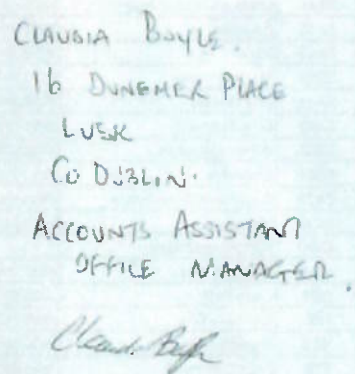 CLAUDIA BOYLE.
16 DUNEMER PLACE
LUSK
CO DUBLIN.
ACCOUNTS ASSISTANT
OFFICE MANAGER.
Claudia Boyle